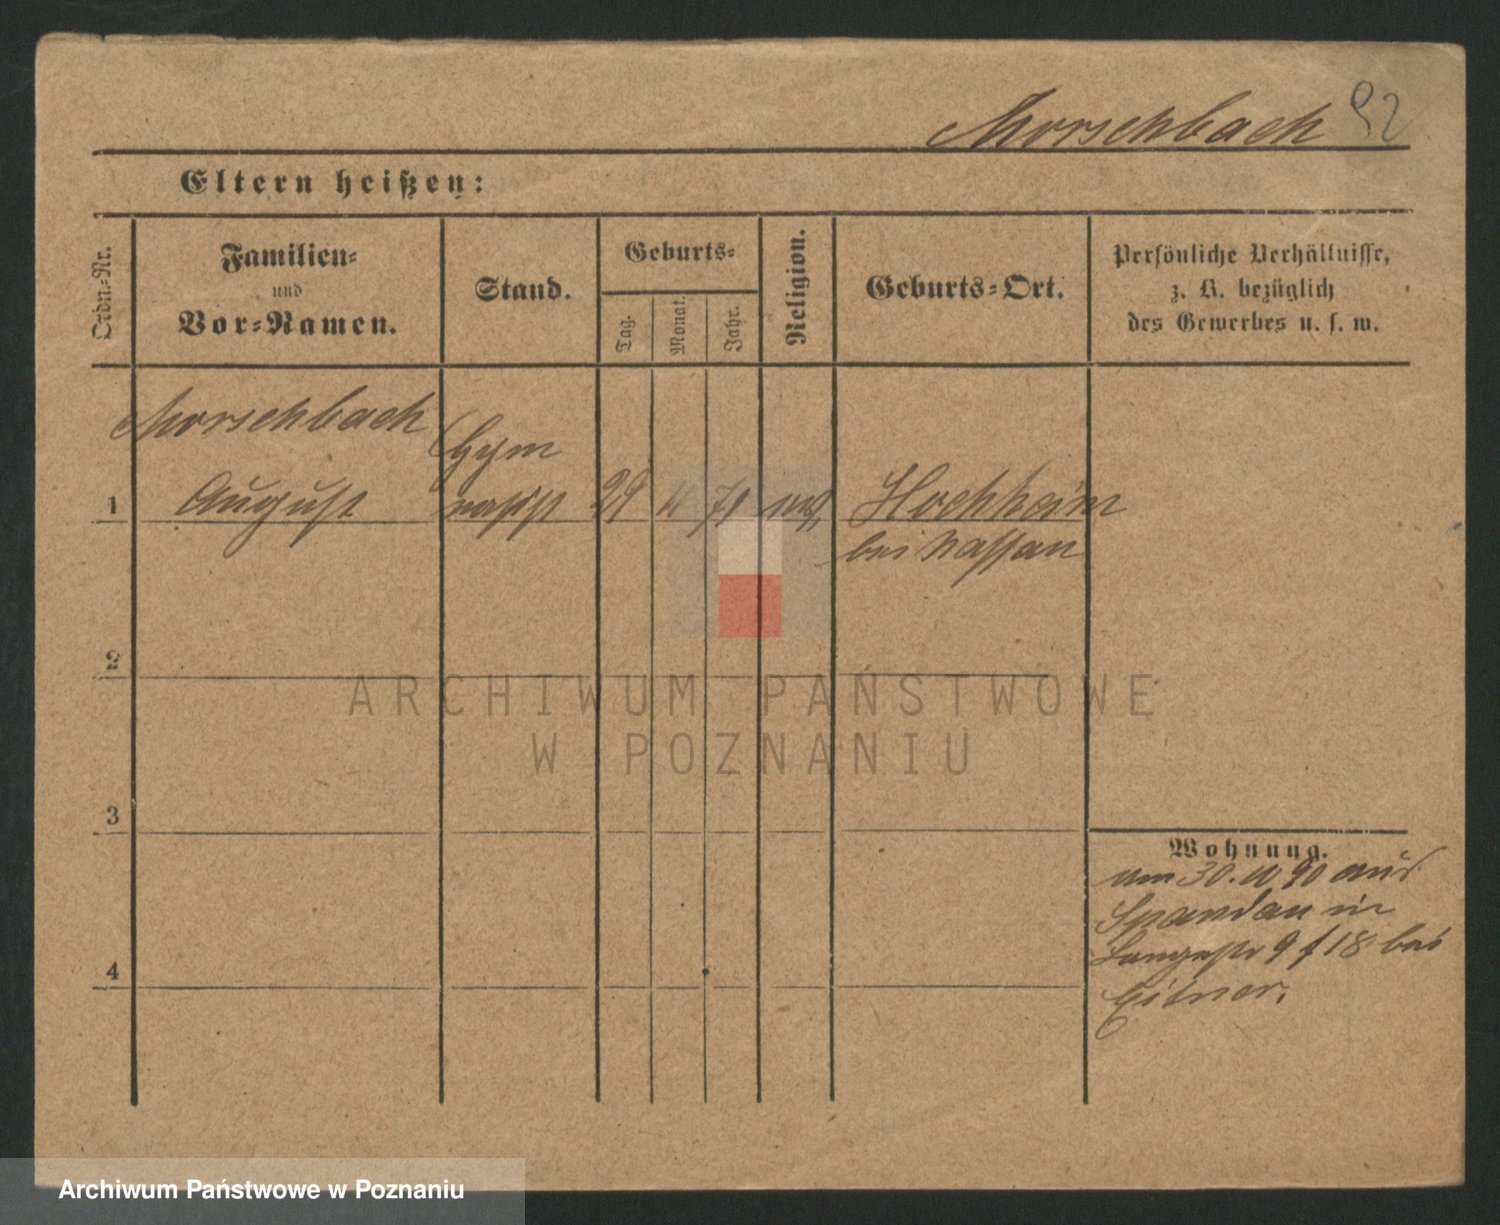 Morschbach 92
Eltern heißen:
Ordn.-Nr.
Familien-
und
Vor-Namen.
Stand.
Geburts-
Tag.
Monat.
Jahr.
Religion.
Geburts-Ort.
Persönliche Verhältnisse,
z. B. bezüglich
des Gewerbes u. s. w.
Morschbach
Gym
1 August nasist 29 71 Hochheim
bei Nassau
2
ARCHIWUM PAŃSTWOWE
W POZNANIU
3
Wohnung.
am 30. 90 aus
Spandau in
Langestr 9 f 18 bei
Eitner.
4
Archiwum Państwowe w Poznaniu